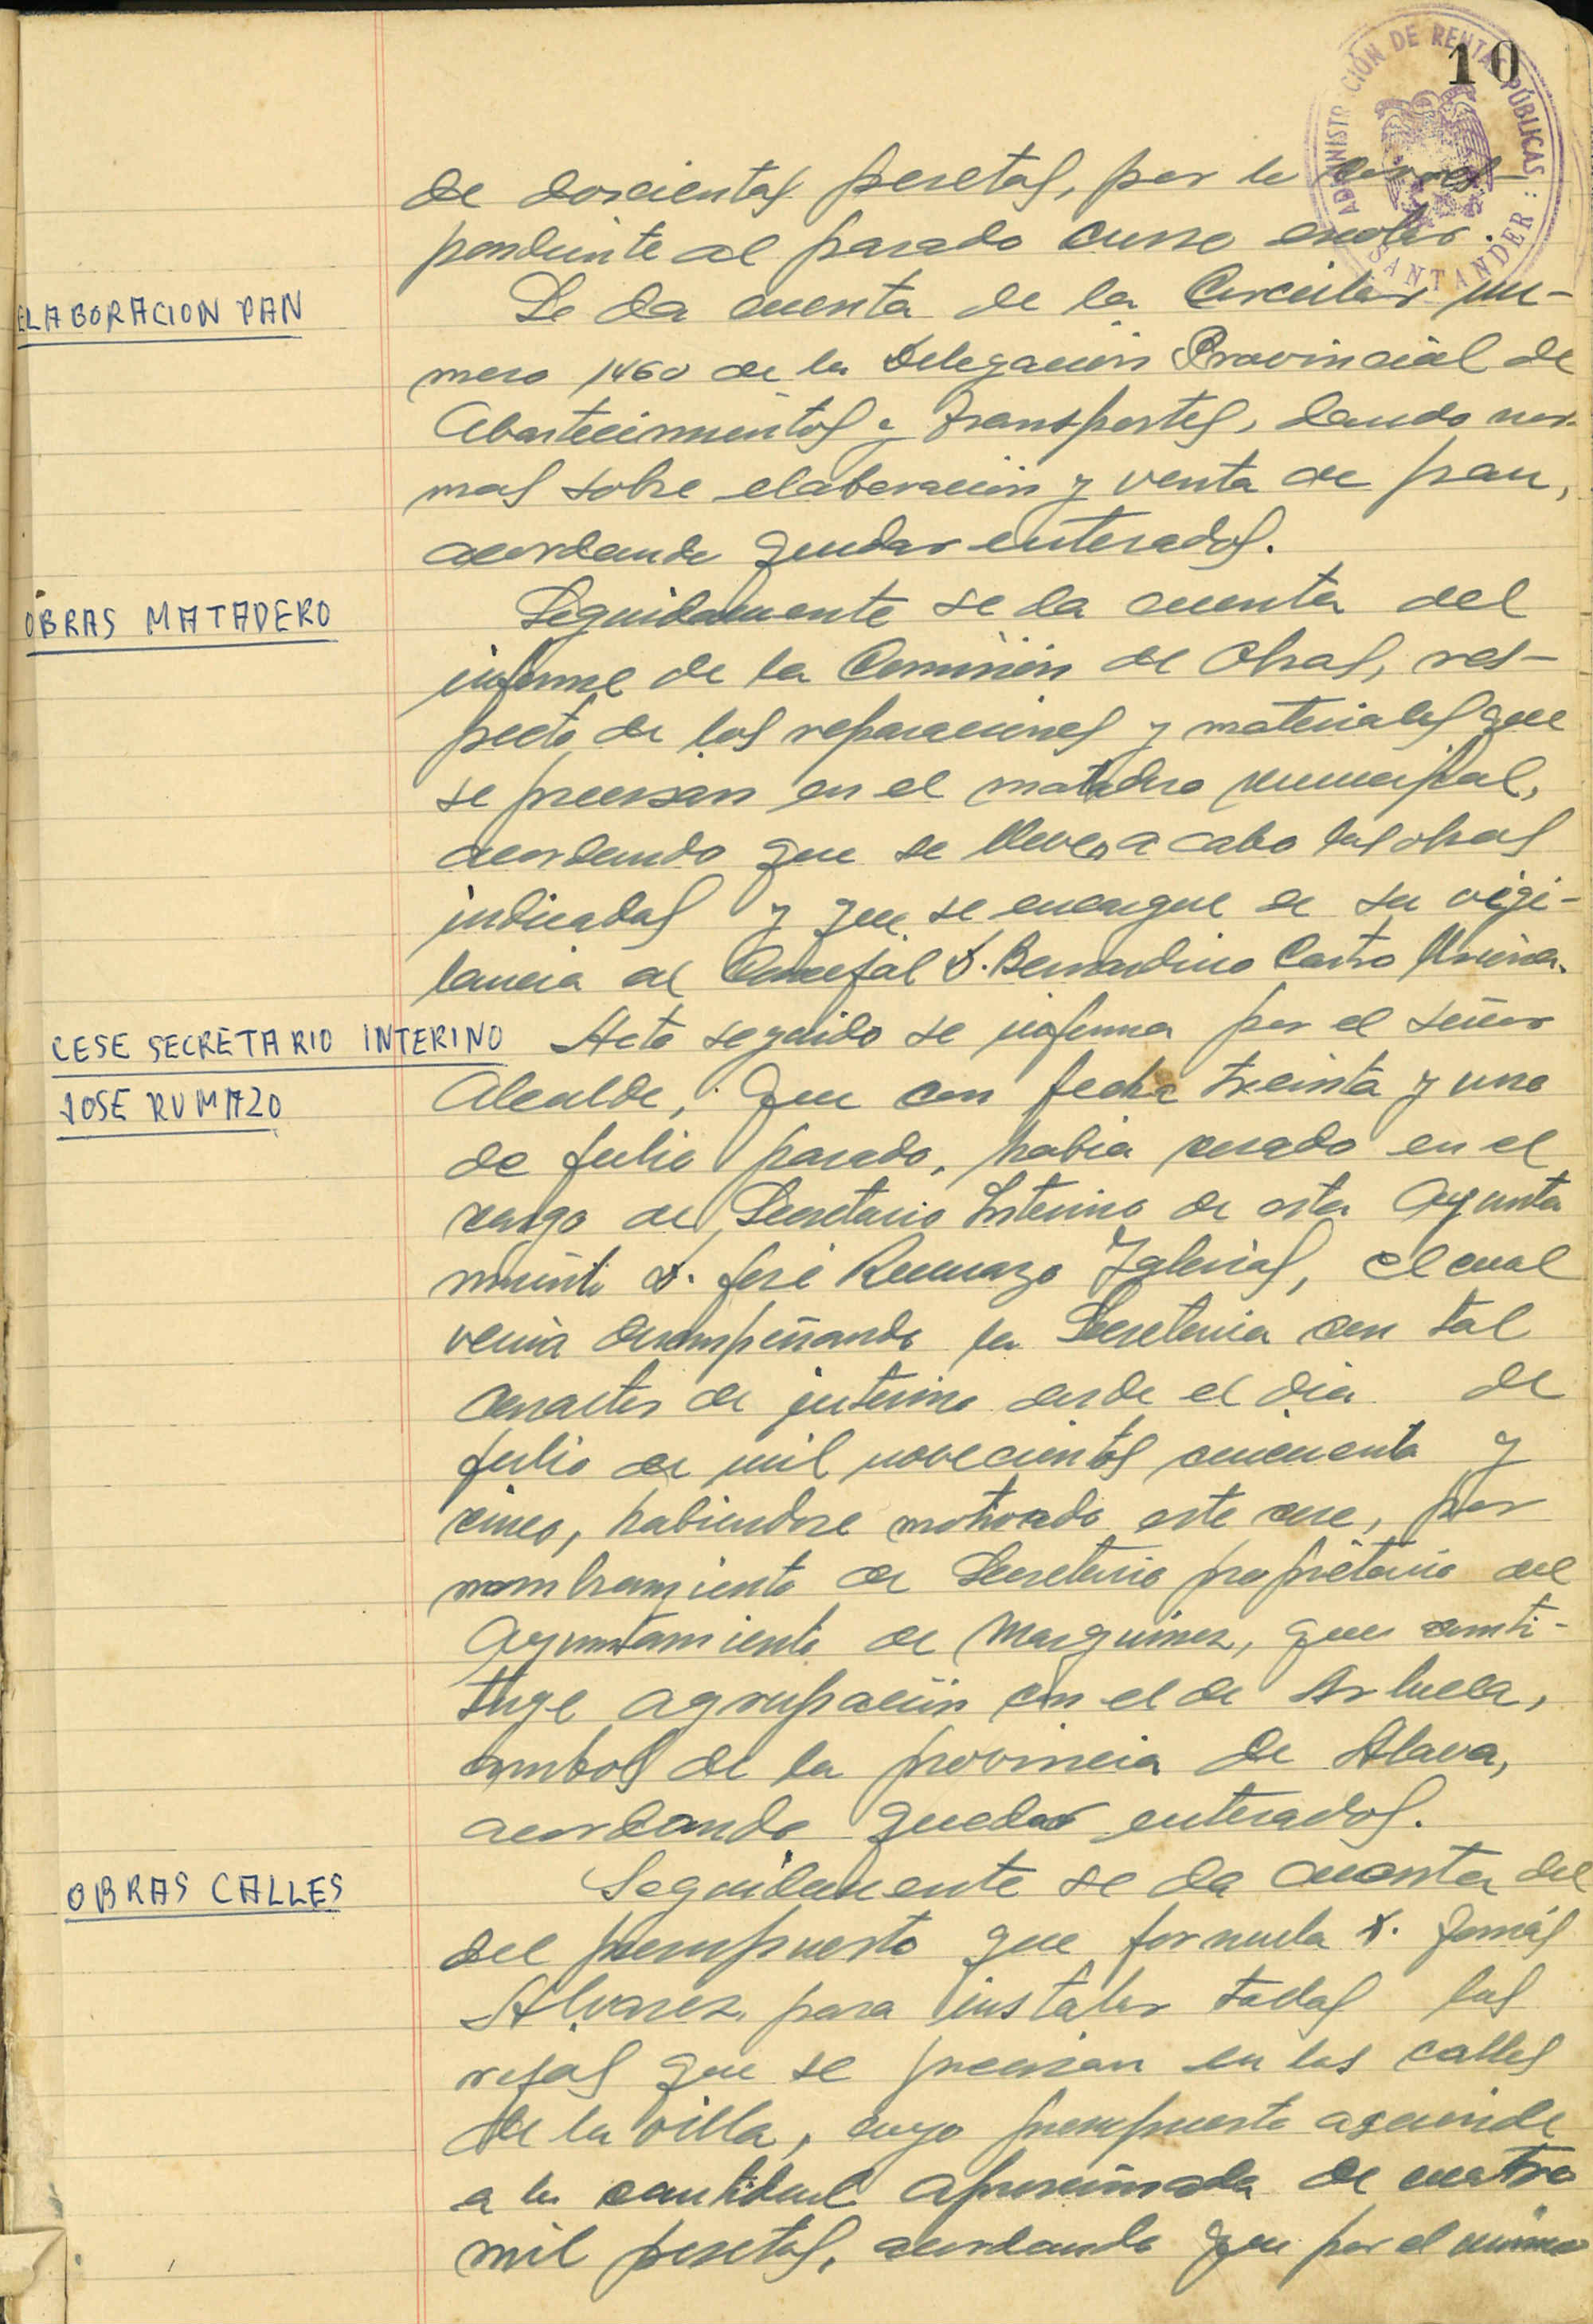 10
ADMINISTRACIÓN DE RENTAS PÚBLICAS : SANTANDER :
de doscientas pesetas, por lo corres-
pondiente al pasado curso escolar.
ELABORACION PAN
Se da cuenta de la Circular nu-
mero 1460 de la Delegación Provincial de
Abastecimientos y Transportes, dando nor-
mas sobre elaboración y venta de pan,
acordando quedar enterados.
OBRAS MATADERO
Seguidamente se da cuenta del
informe de la Comisión de Obras, res-
pecto de las reparaciones y materiales que
se precisan en el matadero municipal,
acordando que se lleven a cabo las obras
indicadas y que se encargue de su vigi-
lancia al Concejal D. Bernardino Castro
CESE SECRETARIO INTERINO
JOSE RUMAZO
Acto seguido se informa por el señor
Alcalde, que con fecha treinta y uno
de julio pasado, habia cesado en el
cargo de Secretario Interino de este Ayunta
miento D. José Rumazo Iglesias, el cual
venia desempeñando la Secretaria con tal
caracter de interino desde el dia de
julio de mil novecientos cincuenta y
cinco, habiendose motivado este cese, por
nombramiento de Secretario propietario del
Ayuntamiento de Marquinez, que consti-
tuye agrupación con el de Arlucea,
ambos de la provincia de Alava,
acordando quedar enterados.
OBRAS CALLES
Seguidamente se da cuenta del
del presupuesto que formula D. Tomás
Alvarez para instalar todas las
rejas que se precisan en las calles
de la villa, cuyo presupuesto asciende
a la cantidad aproximada de cuatro
mil pesetas, acordando que por el mismo